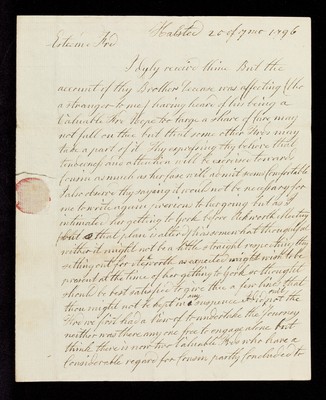 Halsted 20 of 7 mo 1796
Esteem'd Frd
I duly receive thine But the
account of thy Brother decease was affecting (tho
a stranger to me) having heard of his being a
Valuable Frd Hope too large a share of Care may
not fall on thee but that some other Frds may
take a part of it Thy expressing thy belief that
tenderness and attention will be exercised towards
Cousin as much as her case will admit seems comfortable
I also observe thy saying it would not be necessary for
me to write again previous to her going but as I
intimated her getting to York before Ackworth Meeting
(but that plan is alter'd) has somewhat thoughtful
whether it might not be a little straight respecting the
setting out for Ackworth as expected might wish to be
present at the time of her getting to York so thought
should be best satisfied to give thee a few lines that
thou might not be kept in any suspence I expect not
Frd we foresaw had a view of to undertake the Journey
neither was there any one free to engage alone but
think there is now two Valuable Frds who have a
Considerable regard for Cousin partly Concluded to